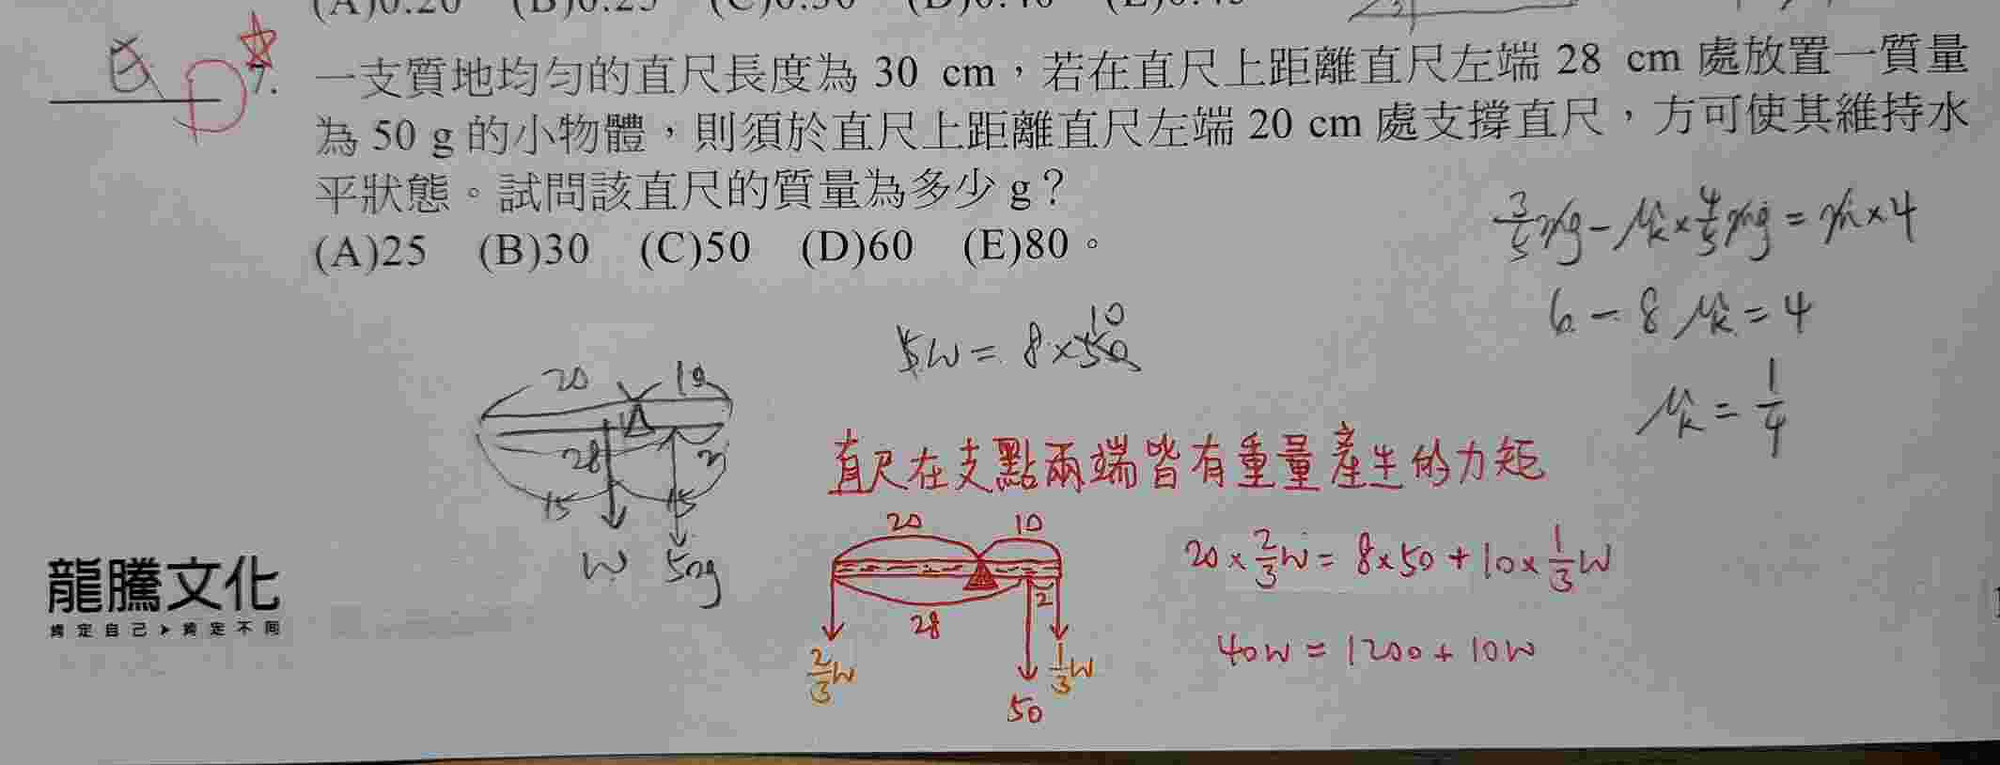 一支質地均勻的直尺長度為 30 cm，若在直尺上距離直尺左端 28 cm 處放置一質量
7.
為 50 g 的小物體，則須於直尺上距離直尺左端 20 cm 處支撐直尺，方可使其維持水
平狀態。試問該直尺的質量為多少 g？
(A)25 (B)30 (C)50 (D)60 (E)80。
3/5 mg - μk × 4/5 mg = m × 4
6 - 8 μk = 4
μk = 1/4
5W = 8 × 50
10
20 10
28 2
15 15
W 50g
直尺在支點兩端皆有重量產生的力矩
20 10
28 2
2/3 W 1/3 W
50
20 × 2/3 W = 8 × 50 + 10 × 1/3 W
40W = 1200 + 10W
龍騰文化
肯定自己▸肯定不同